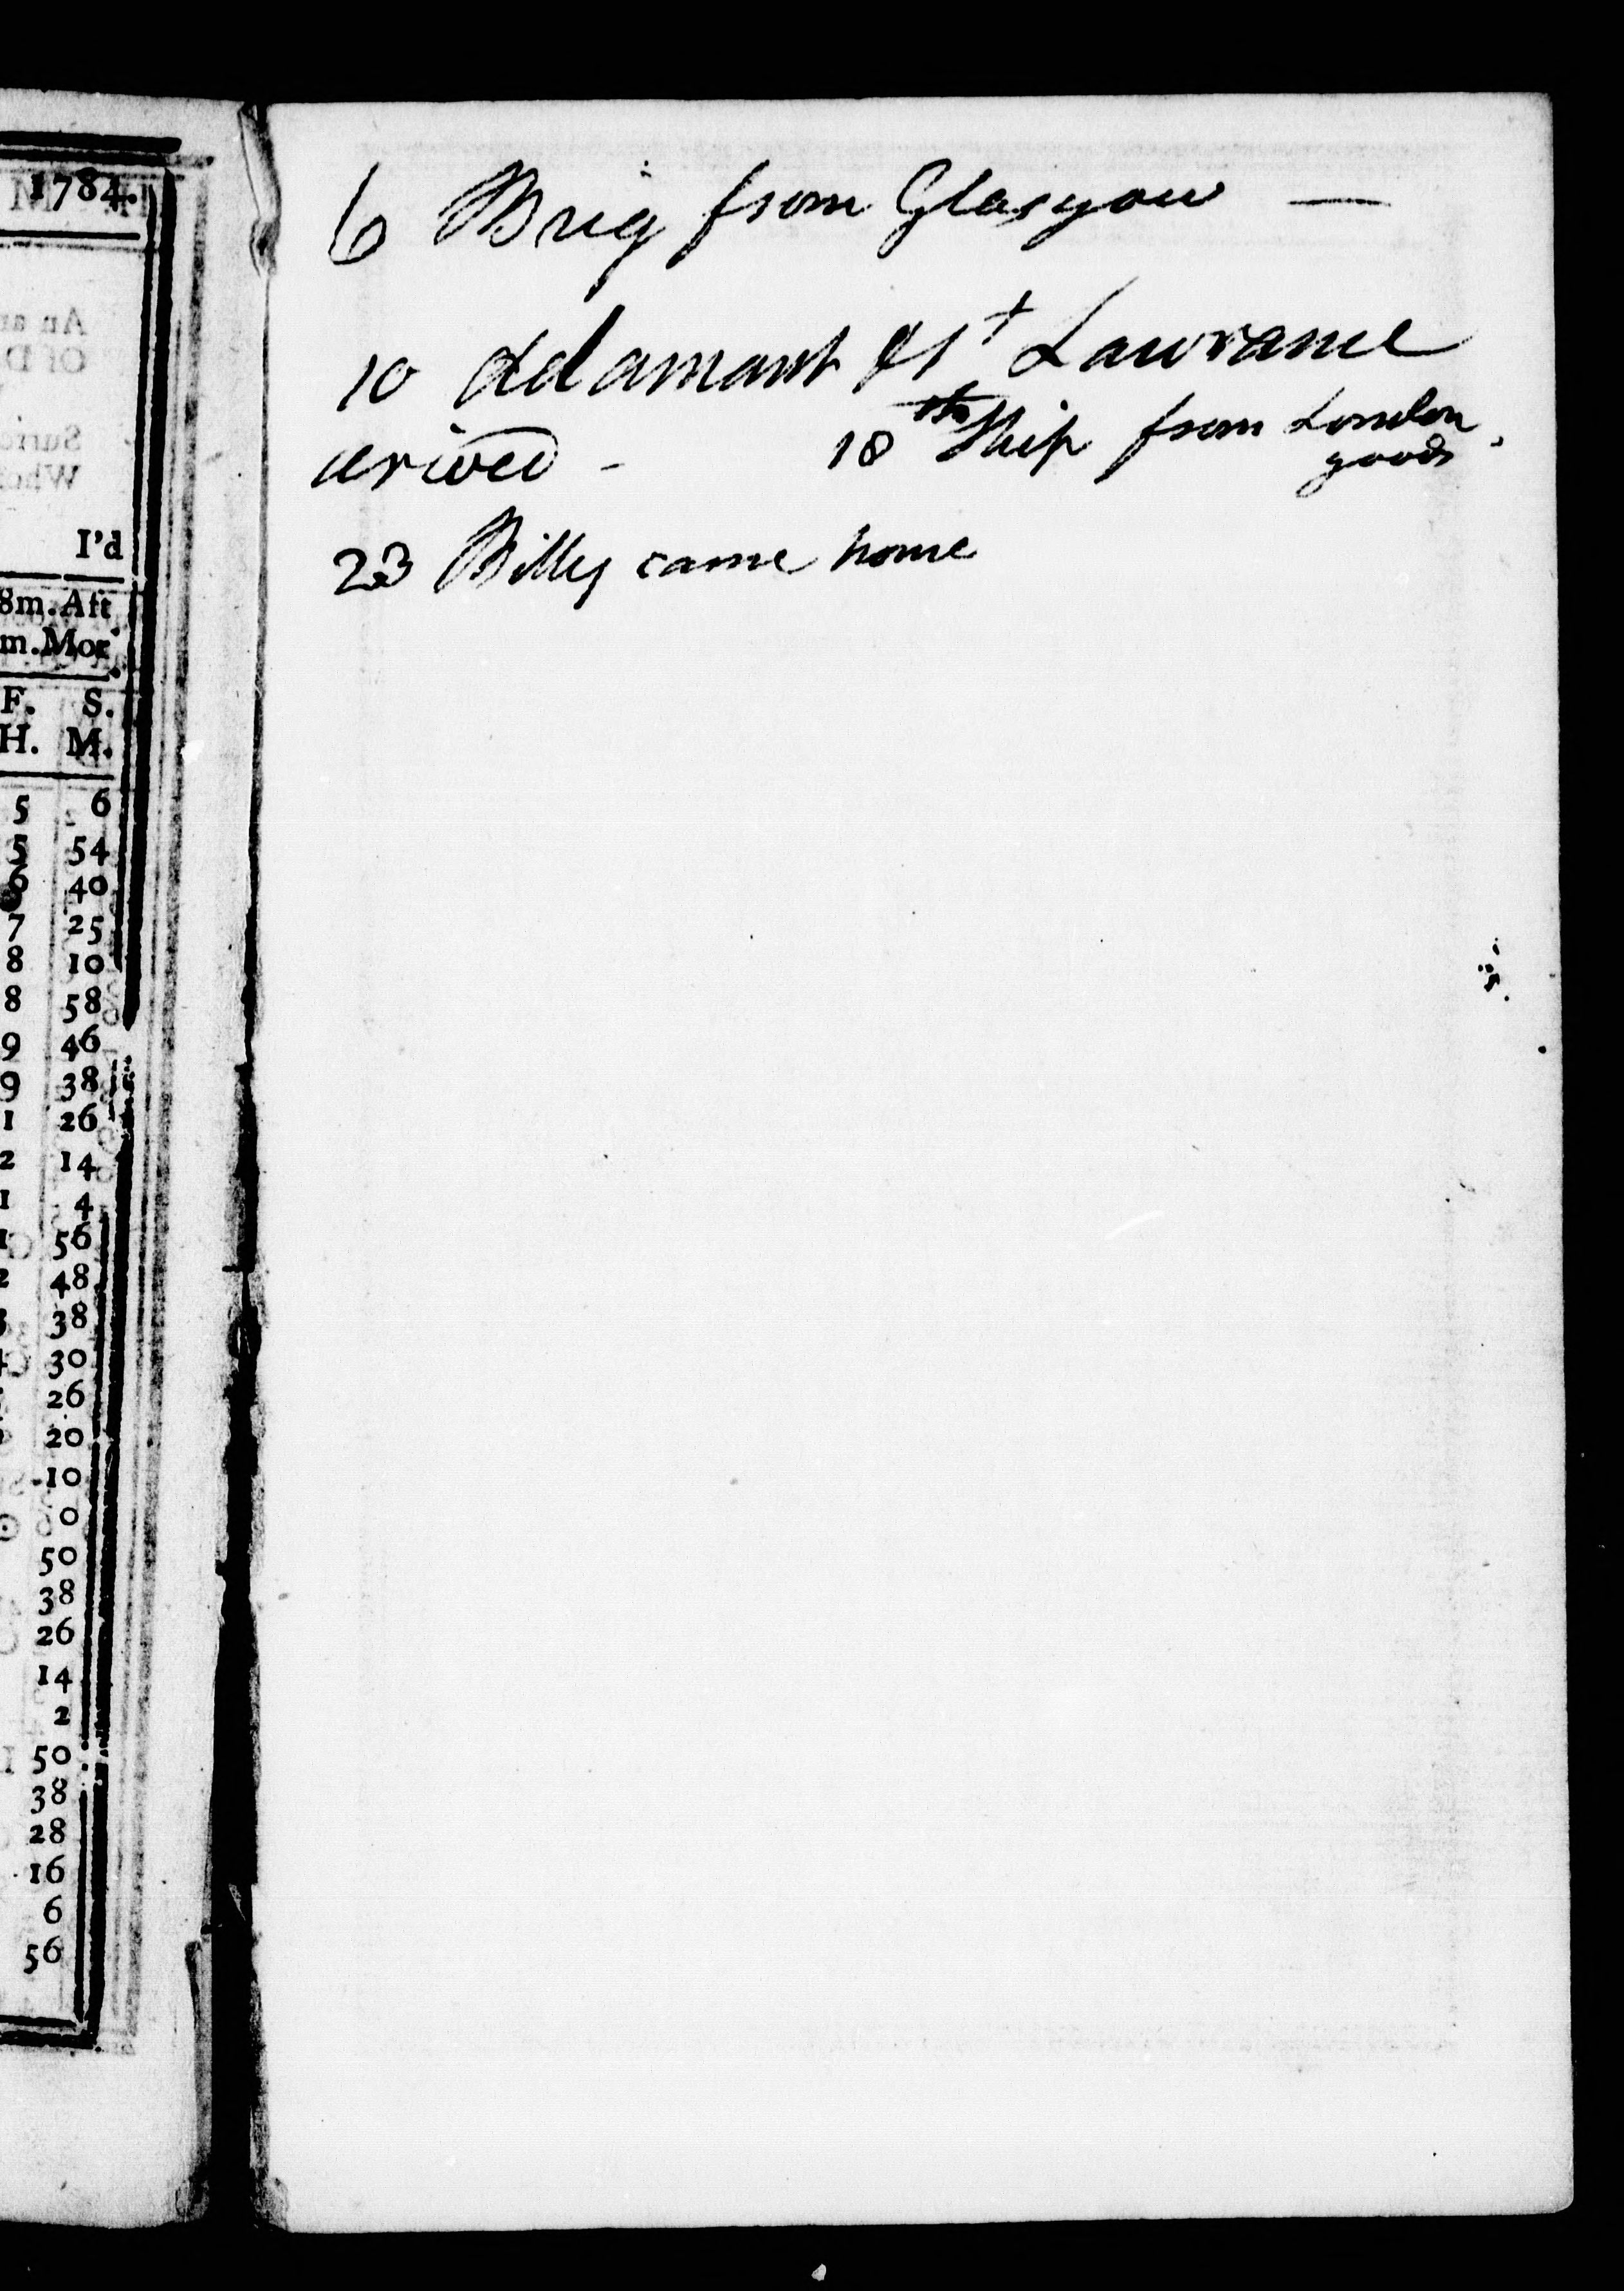 1784.
I'd
8m.Aft
m.Mor
F. S.
H. M.
5 6
5 54
6 40
7 25
8 10
8 58
9 46
9 38
1 26
2 14
1 4
1 56
2 48
38
30
26
20
10
0
50
38
26
14
2
50
38
28
16
6
56
6 Brig from Glasgow —
10 Adamant & St Lawrance
arived - 18th Ship from London
goods
23 Billy came home